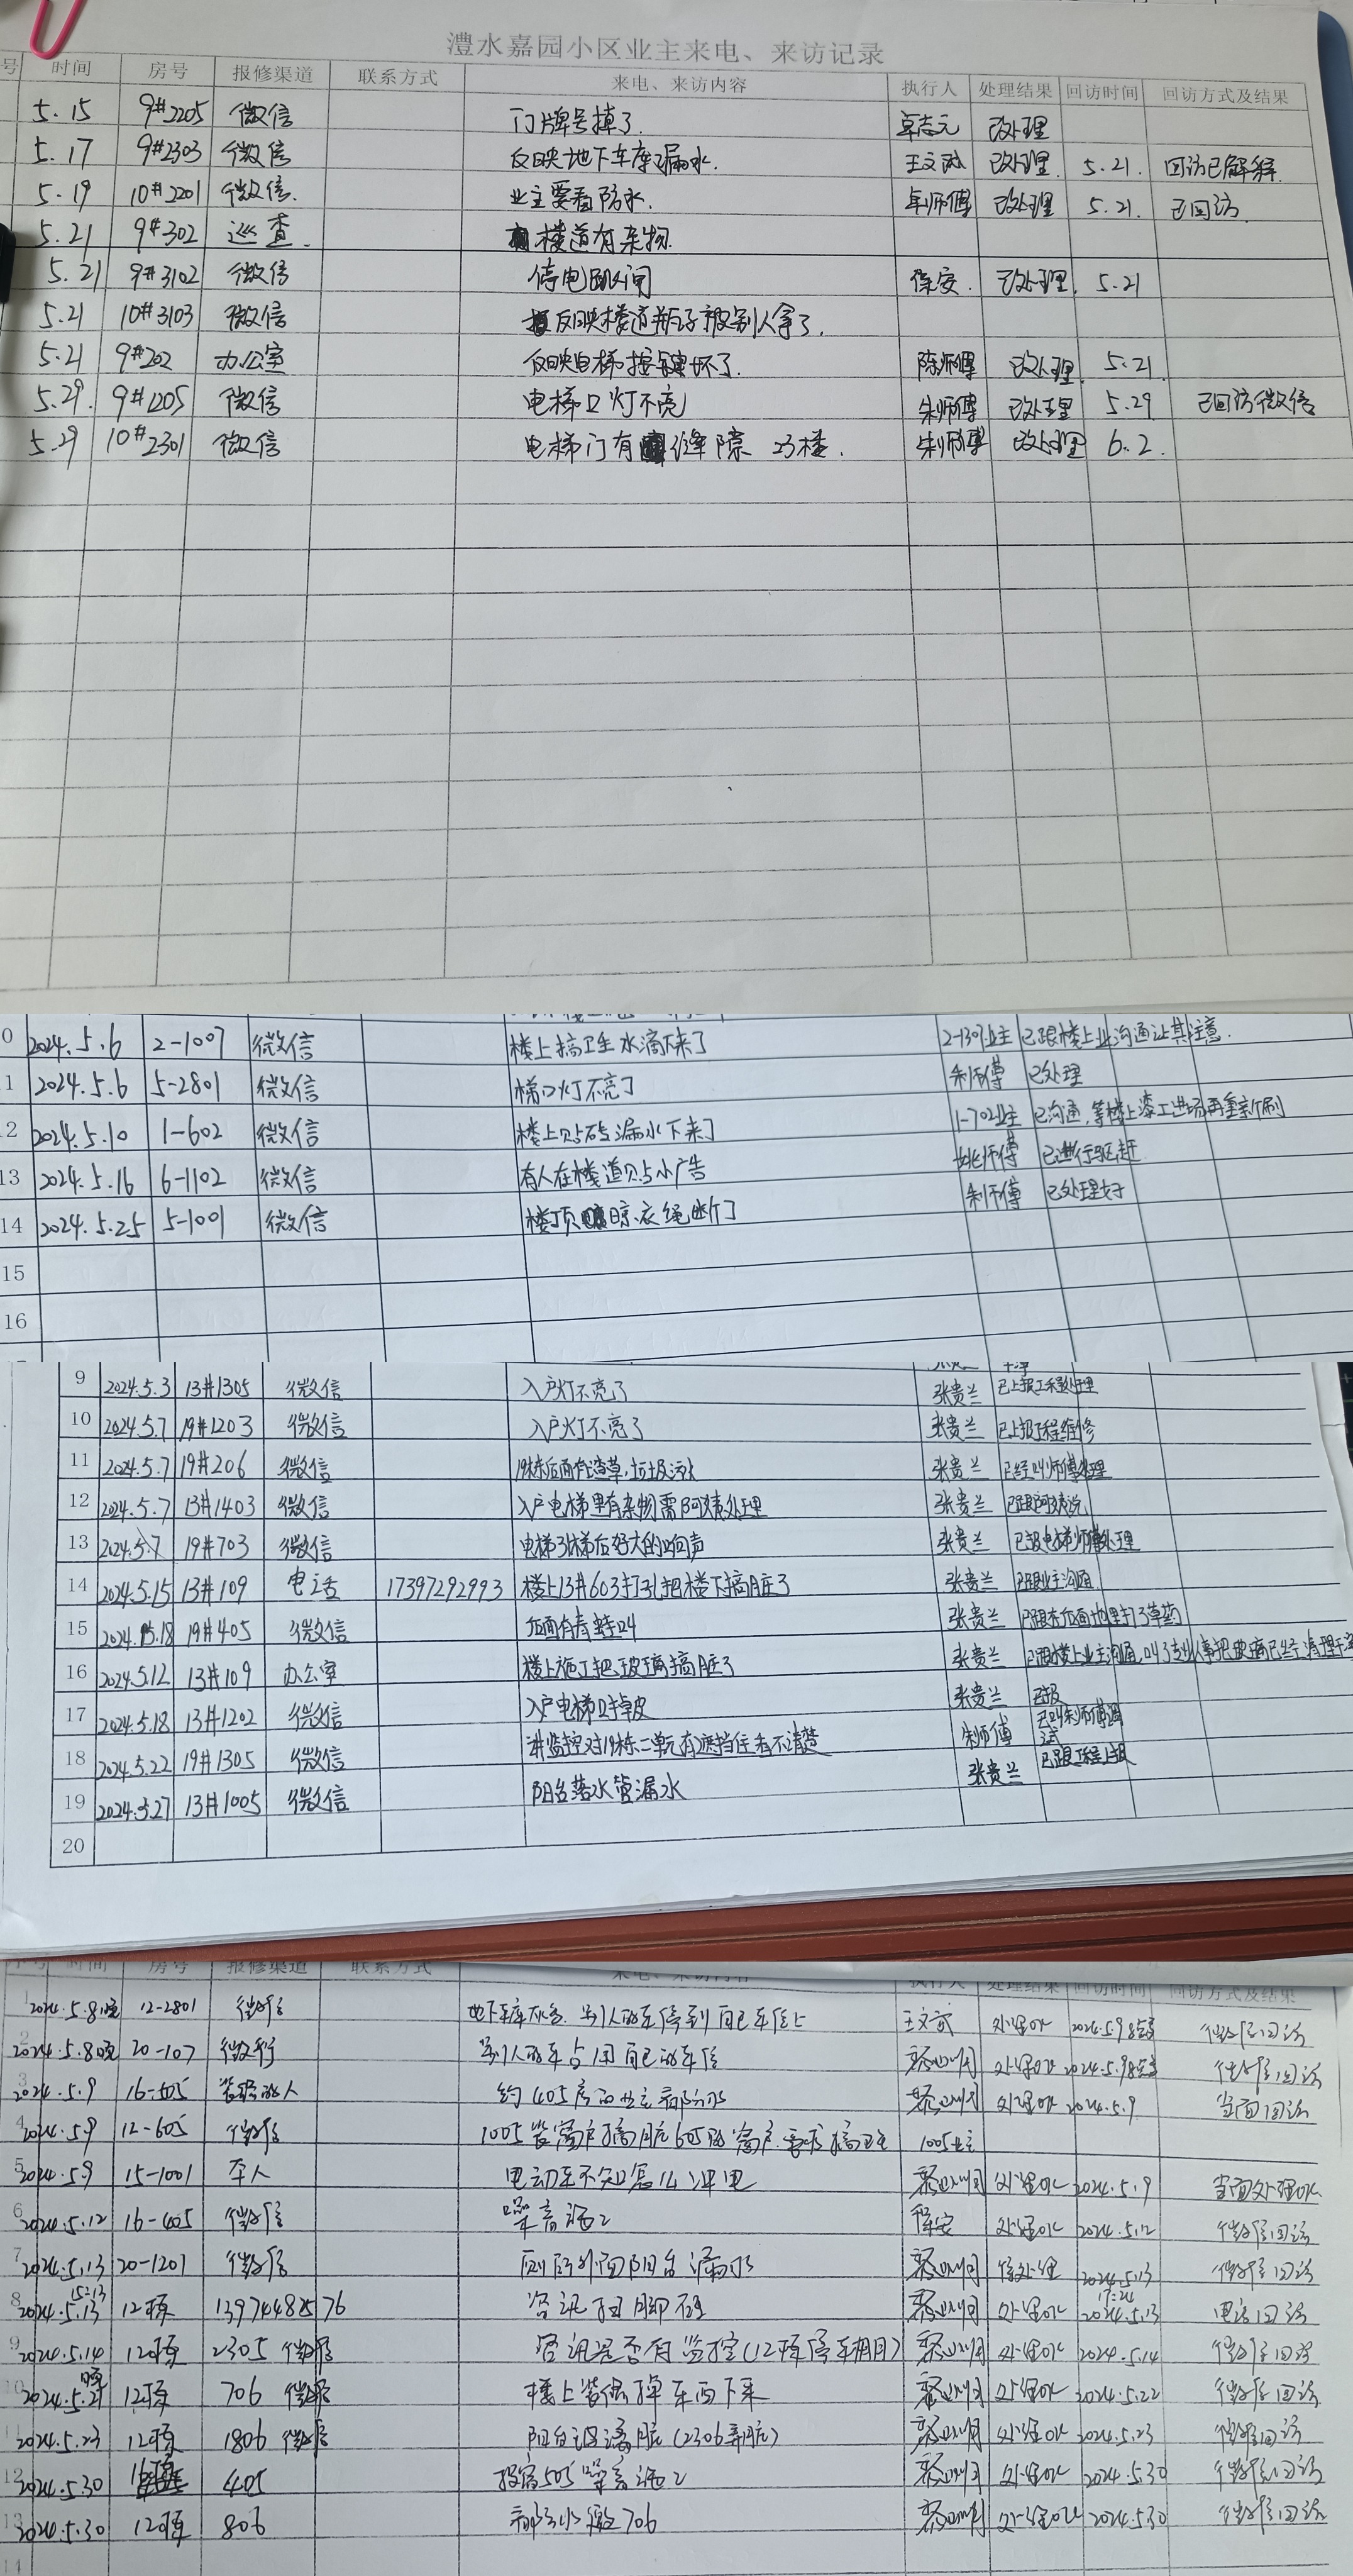 澧水嘉园小区业主来电、来访记录
号 时间 房号 报修渠道 联系方式 来电、来访内容 执行人 处理结果 回访时间 回访方式及结果
5.15 9#2205 微信 门牌号掉了. 卓志元 已处理
5.17 9#2303 微信 反映地下车库漏水. 王文武 已处理. 5.21. 回访已解释.
5.19 10#2201 微信. 业主要看防水. 卓师傅 已处理 5.21. 已回访.
5.21 9#302 巡查. 楼道有杂物.
5.21 9#3102 微信 停电 保安. 已处理. 5.21
5.21 10#3103 微信 反映楼道瓶子被别人拿了.
5.21 9#202 办公室 反映电梯按键坏了. 陈师傅 已处理. 5.21
5.29. 9#1205 微信 电梯口灯不亮 朱师傅 已处理 5.29 已回访微信
5.29 10#2301 微信 电梯门有缝隙 23楼. 朱师傅 已处理 6.2.
0 2024.5.6 2-1007 微信 楼上搞卫生水滴下来了 2-1307业主 已跟楼上业沟通让其注意.
1 2024.5.6 5-2801 微信 梯口灯不亮了 朱师傅 已处理
2 2024.5.10 1-602 微信 楼上贴砖漏水下来了 1-702业主 已沟通,等楼上漆工进场再重新刷
13 2024.5.16 6-1102 微信 有人在楼道贴小广告 姚师傅 已进行驱赶
14 2024.5.25 5-1001 微信 楼顶晾衣绳断了 朱师傅 已处理好
15
16
9 2024.5.3 13#1305 微信 入户灯不亮了 张贵兰 已上报工程处理
10 2024.5.7 19#1203 微信 入户灯不亮了 张贵兰 已上报工程维修
11 2024.5.7 19#206 微信 19栋后面有渣草,垃圾污水 张贵兰 已经叫师傅处理
12 2024.5.7 13#1403 微信 入户电梯里有杂物需阿姨处理 张贵兰 已跟阿姨说
13 2024.5.7 19#703 微信 电梯3楼后好大的响声 张贵兰 已报电梯师傅处理
14 2024.5.15 13#109 电话 17397292993 楼上13#603打孔把楼下搞脏了 张贵兰 已跟业主沟通
15 2024.5.18 19#405 微信 后面有青蛙叫 张贵兰 已跟栋后面地里打了草药
16 2024.5.12 13#109 办公室 楼上施工把玻璃搞脏了 张贵兰 已跟楼上业主沟通,叫了
17 2024.5.18 13#1202 微信 入户电梯口掉皮 张贵兰 已报
18 2024.5.22 19#1305 微信 讲监控对19栋二单元有遮挡住看不清楚 朱师傅 已叫朱师傅调试
19 2024.5.27 13#1005 微信 阳台落水管漏水 张贵兰 已跟工程上报
20
序号 时间 房号 报修渠道 联系方式 来电、来访内容 执行人 处理结果 回访时间 回访方式及结果
1 2024.5.8晚 12-2801 微信 地下车库 别人的车停到自己车位上 王文武 处理OK 2024.5.9 微信回访
2 2024.5.8晚 20-107 微信 别人的车占用自己的车位 处理OK 2024.5.9 微信回访
3 2024.5.9 16-505 装修的人 约405房的业主看防水 处理OK 2024.5.9 当面回访
4 2024.5.9 12-605 微信 1005装窗户搞脏605的窗户.要求搞卫生 1005业主
5 2024.5.9 15-1001 本人 电动车不知怎么冲电 处理OK 2024.5.9 当面处理OK
6 2024.5.12 16-405 微信 噪音 保安 处理OK 2024.5.12 微信回访
7 2024.5.13 20-1201 微信 厕所外面阳台漏水 待处理 2024.5.13 微信回访
8 2024.5.13 15:13 12栋 13974482576 咨询 处理OK 2024.5.13 17:24 电话回访
9 2024.5.14 12栋 2305 微信 咨询是否有监控(12栋停车棚) 处理OK 2024.5.14 微信回访
10 2024.5.21 12栋 706 微信 楼上装修掉东西下来 处理OK 2024.5.22 微信回访
11 2024.5.23 12栋 1806 微信 阳台玻璃脏(2306弄脏) 处理OK 2024.5.23 微信回访
12 2024.5.30 16栋 405 投诉505噪音 处理OK 2024.5.30 微信回访
13 2024.5.30 12栋 806 706 处理OK 2024.5.30 微信回访
14